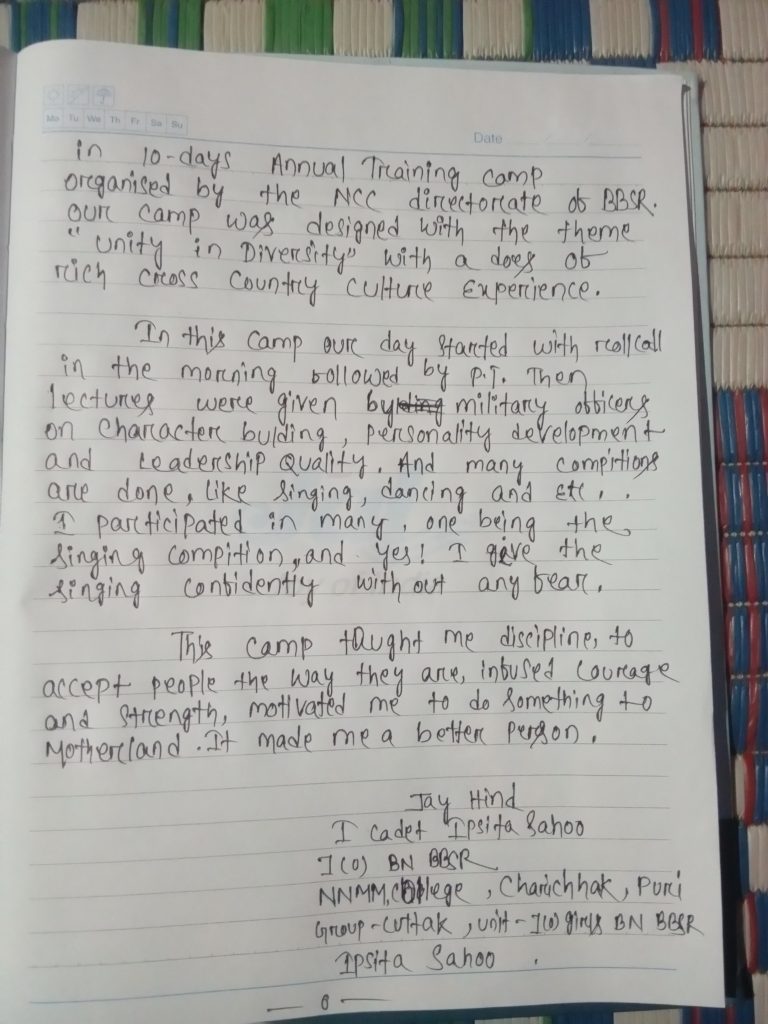 Mo Tu We Th Fr Sa Su
Date
in 10-days Annual Training camp
organised by the NCC directorate of BBSR.
our camp was designed with the theme
"unity in Diversity" with a does of
rich cross country culture Experience.
In this camp our day started with rollcall
in the morning followed by P.T. Then
lectures were given by military officers
on Character bulding, personality development
and Leadership Quality. And many compitions
are done, like singing, dancing and Etc..
I participated in many, one being the
singing compition, and yes! I give the
singing confidently with out any fear.
This camp taught me discipline, to
accept people the way they are, infused courage
and strength, motivated me to do something to
Motherland. It made me a better person.
Jay Hind
I cadet Ipsita Sahoo
1(0) BN BBSR
NNMM, College, Charichhak, Puri
Group-Cuttak, unit-1(0) girls BN BBSR
Ipsita Sahoo.